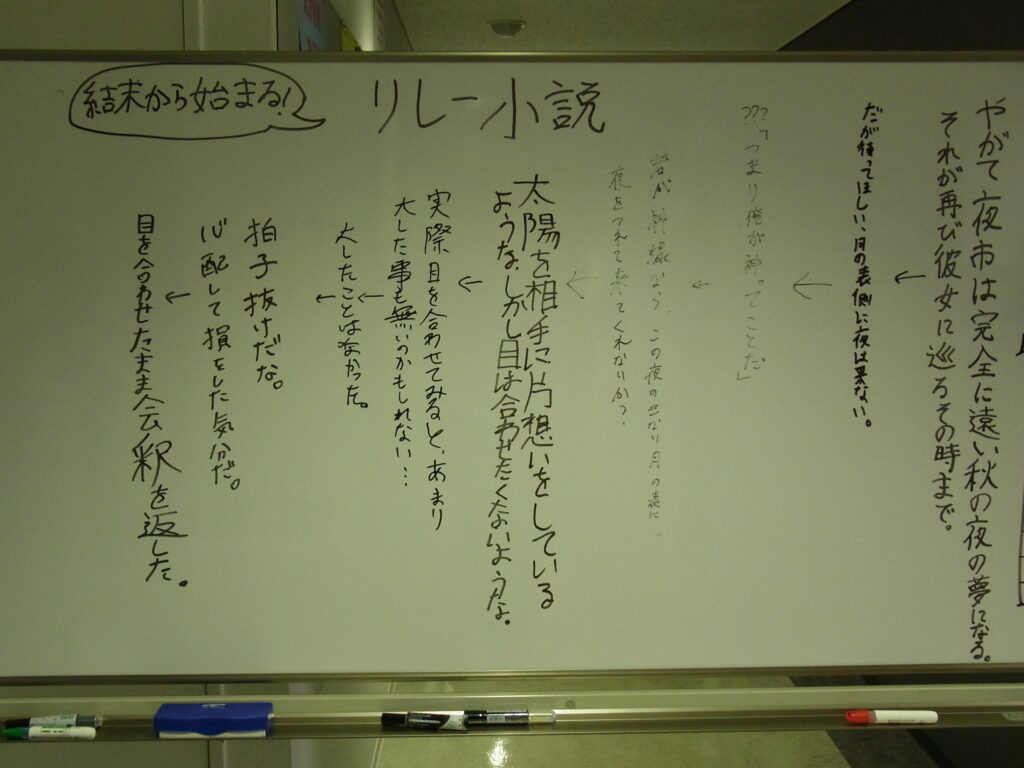 リレー小説
結末から始まる!
やがて夜市は完全に遠い秋の夜の夢になる。
それが再び彼女に巡るその時まで。
だが待ってほしい、月の表側に夜は来ない。
???「つまり俺が神ってことだ」
この夜の
月の表に
夜をつれて来てくれないか?
太陽を相手に片想いをしている
ような、しかし目は合わせたくないような。
実際目を合わせてみると、あまり
大した事も無いのかもしれない…
大したことはなかった。
拍子抜けだな。
心配して損をした気分だ。
目を合わせたまま会釈を返した。